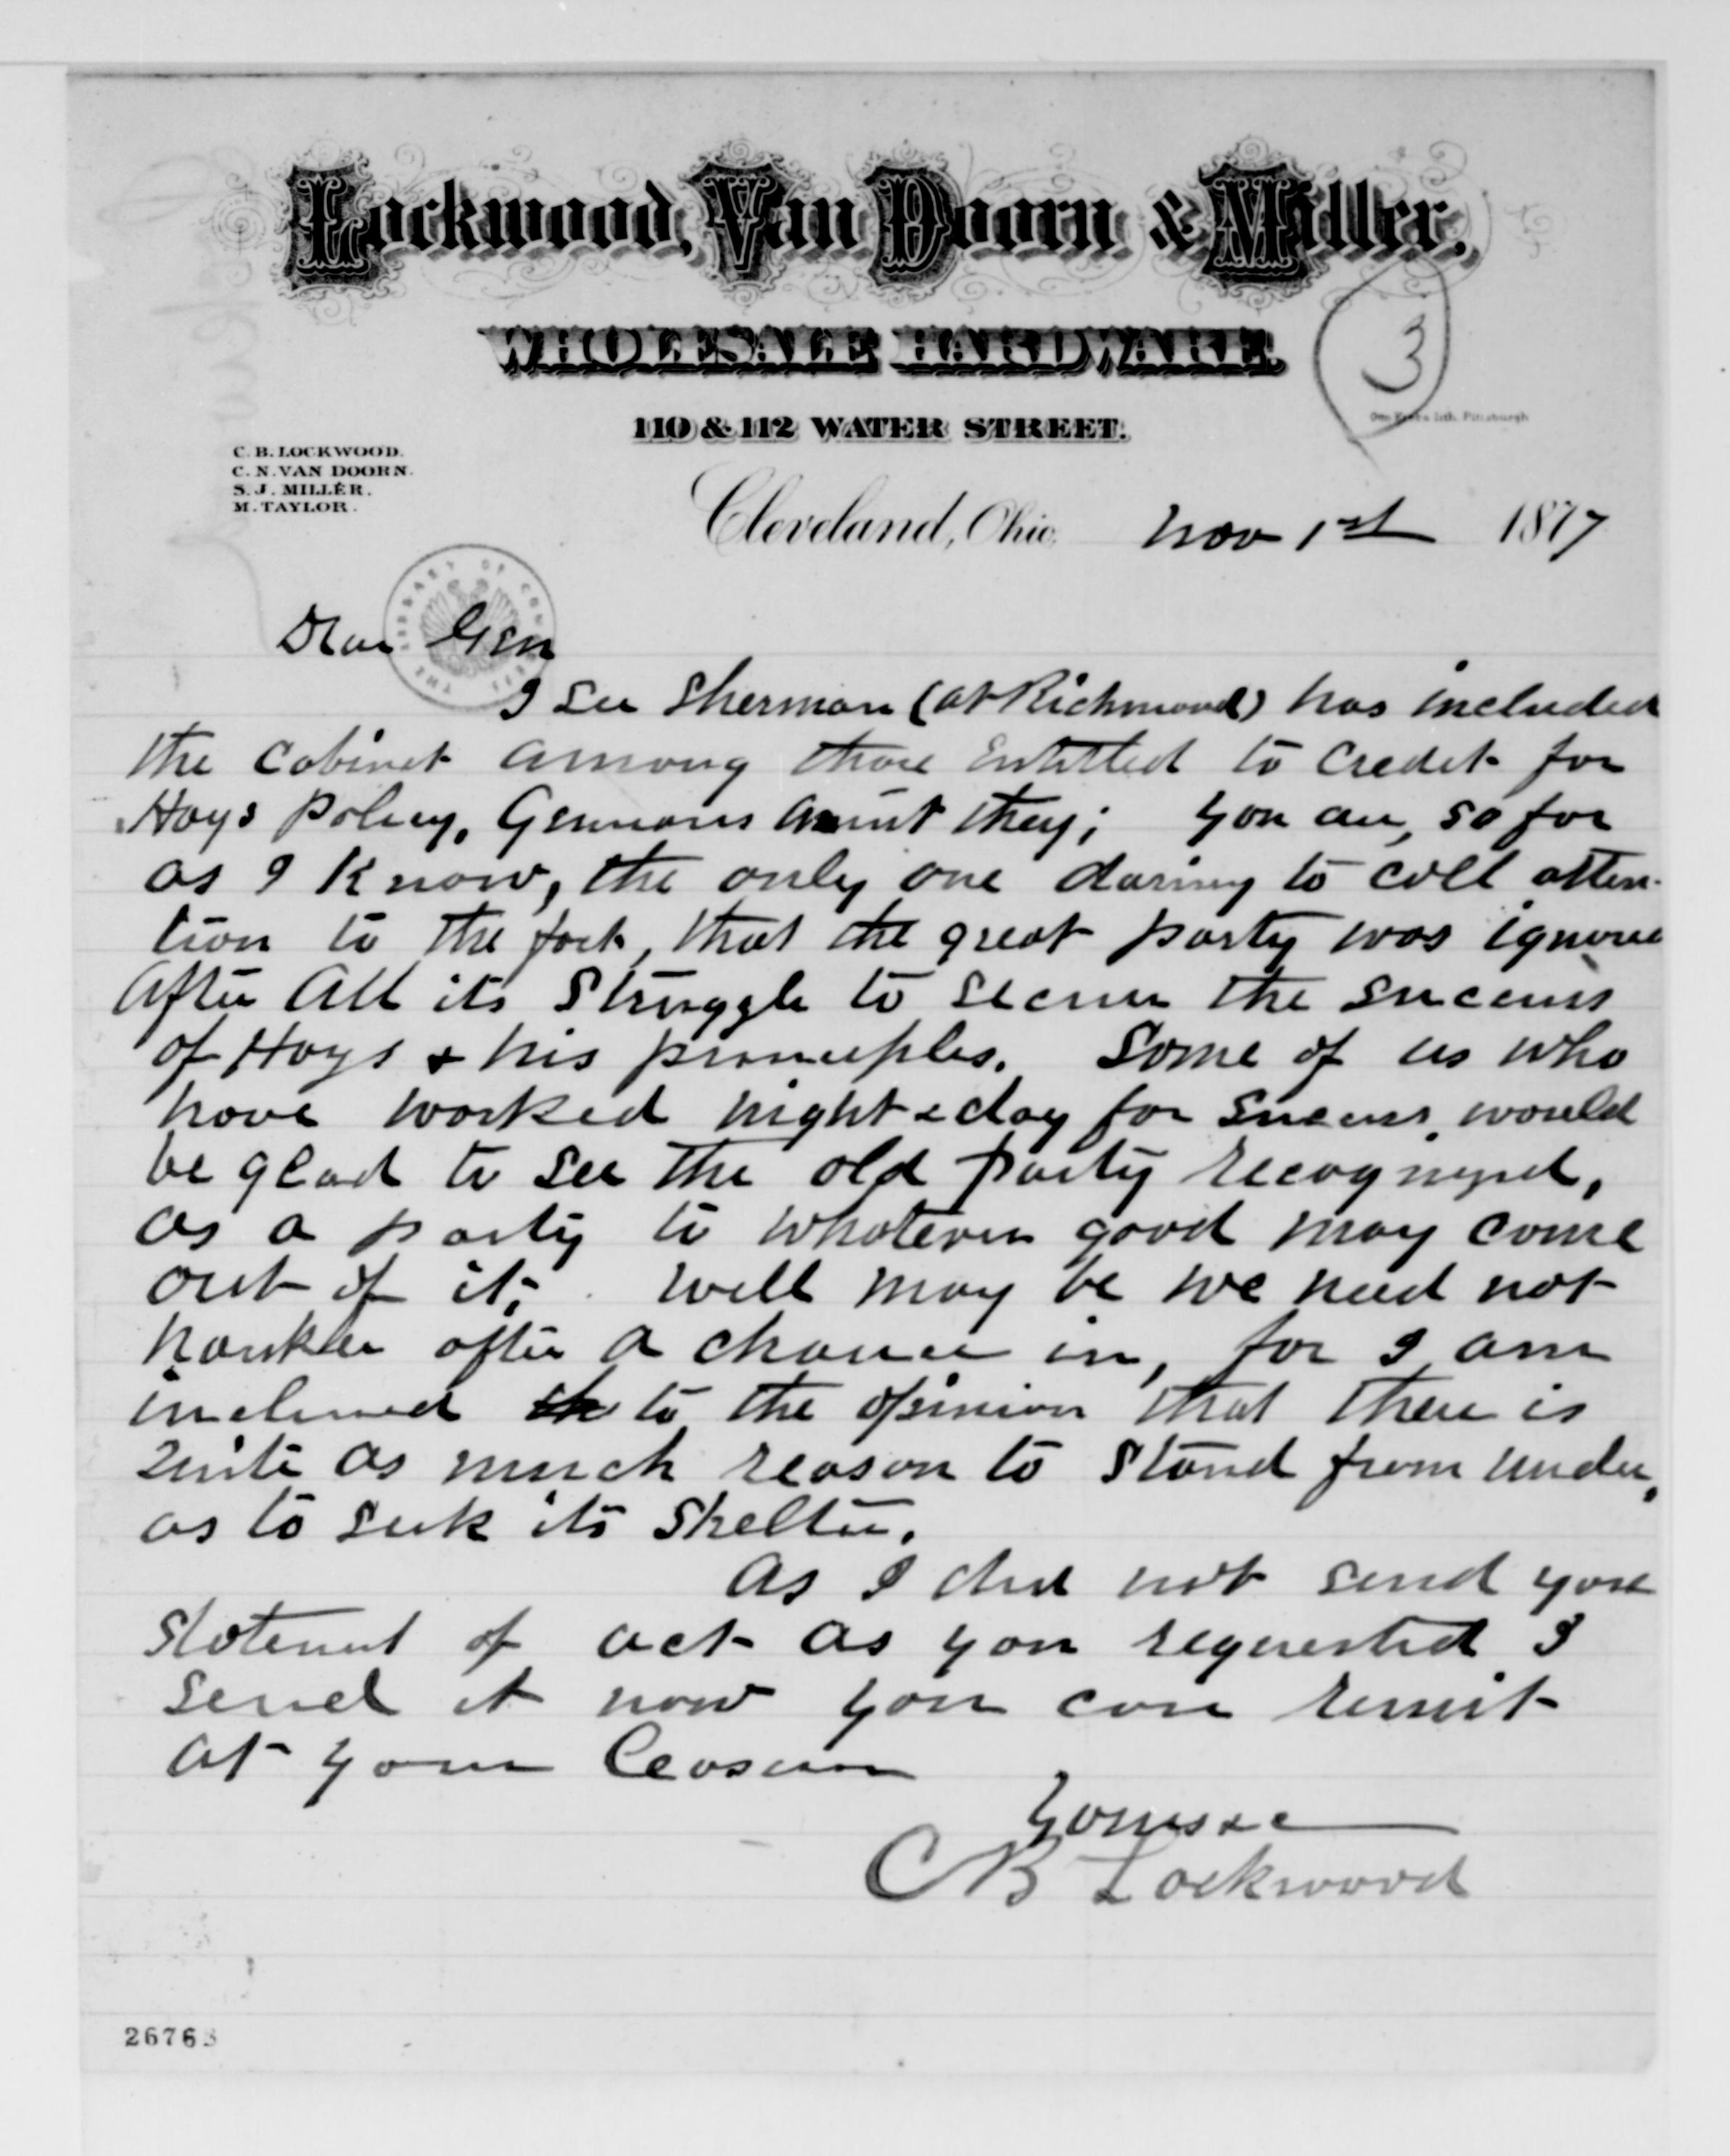 Lockwood, Van Doorn & Miller,
WHOLESALE HARDWARE.
3
110 & 112 WATER STREET.
Otto Krebs lith. Pittsburgh
C. B. LOCKWOOD.
C. N. VAN DOORN.
S. J. MILLER.
M. TAYLOR.
Cleveland, Ohio, Nov 1st 1877
Dear Gen
I see Sherman (at Richmond) has included
the cabinet among those Entitled to credit for
Hays policy. Generous aint they; you are, so far
as I Know, the only one daring to call atten-
tion to the fact, that the great party was ignored
after all its struggle to secure the success
of Hays & his principles. Some of us who
have worked night & day for success, would
be glad to see the old party recognized,
as a party to whatever good may come
out of it; well may be we need not
hanker after a chance in, for I am
inclined to the opinion that there is
quite as much reason to stand from under,
as to seek its shelter.
As I did not send you
statement of act as you requested I
send it now you can remit
at your leasure
Yours &c
C B Lockwood
26768